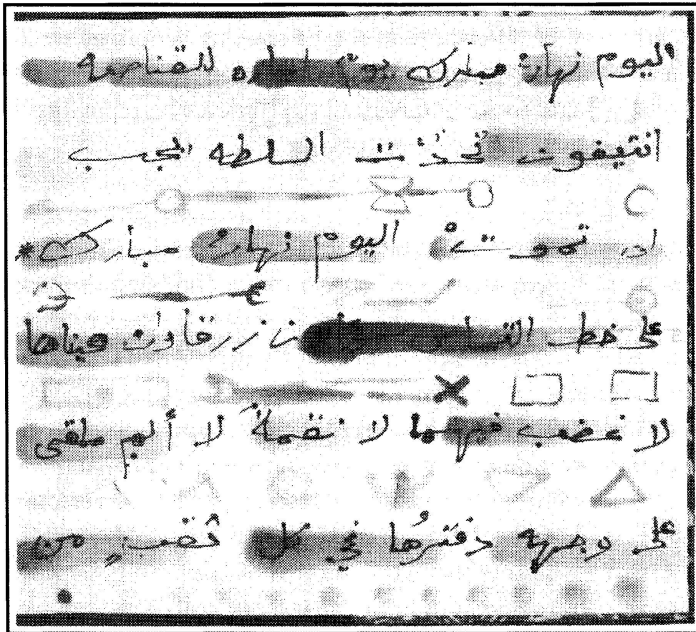 اليوم نهارٌ مبارك يومُ للقناصه
انتيغون تحدّت السلطه يجب
ان تموت اليوم نهارٌ مبارك*
على خط زرقاوان عيناها
لا غضب فيهما لا نقمةً لا ملقى
على وجهه دفترُها في كل ثقبٍ من